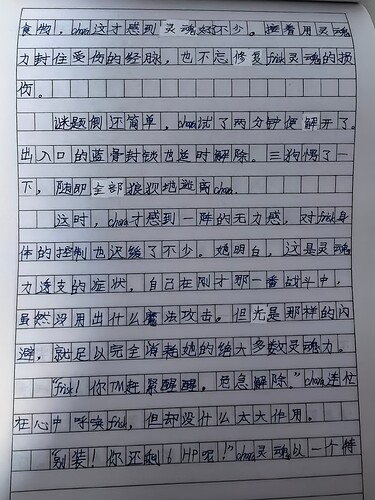 食物，chara这才感到灵魂好不少。接着用灵魂
力封住受伤的经脉，也不忘修复frisk灵魂的损
伤。
谜题倒还简单，chara试了两分钟便解开了。
出入口的蓝骨封锁也这时解除。三狗愣了一
下，随即全部狼狈地逃离chara。
这时，chara才感到一阵的无力感，对frisk身
体的控制也迟缓了不少。她明白，这是灵魂
力透支的症状，自己在刚才那一番战斗中，
虽然没用出什么魔法攻击。但光是那样的闪
避，就足以完全消耗她的绝大多数灵魂力。
“frisk！你TM赶紧醒醒，危急解除。”chara连忙
在心中呼唤frisk，但却没什么太大作用。
“别装！你还剩6HP呢！”chara灵魂以一个特